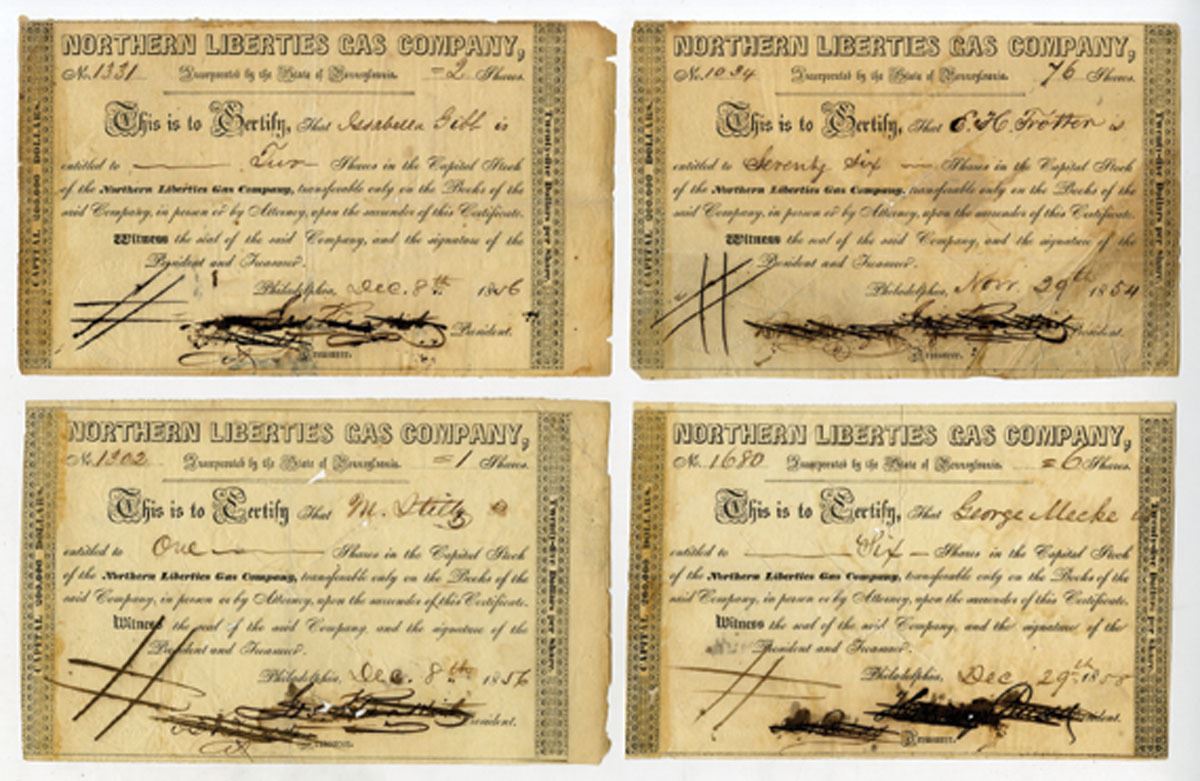 NORTHERN LIBERTIES GAS COMPANY,
No. 1331 Incorporated by the State of Pennsylvania. =2 Shares.
This is to Certify, That Issabella Gibb is
entitled to Two Shares in the Capital Stock
of the Northern Liberties Gas Company, transferable only on the Books of the
said Company, in person or by Attorney, upon the surrender of this Certificate.
Witness the seal of the said Company, and the signature of the
President and Treasurer.
Philadelphia, Dec. 8th 1856
President.
Treasurer.
CAPITAL 200,000 DOLLARS.
Twenty-five Dollars per Share.
NORTHERN LIBERTIES GAS COMPANY,
No. 1034 Incorporated by the State of Pennsylvania. 76 Shares.
This is to Certify, That E. H. Trotter is
entitled to Seventy Six Shares in the Capital Stock
of the Northern Liberties Gas Company, transferable only on the Books of the
said Company, in person or by Attorney, upon the surrender of this Certificate.
Witness the seal of the said Company, and the signature of the
President and Treasurer.
Philadelphia, Nov. 29th 1854
President.
Treasurer.
CAPITAL 200,000 DOLLARS.
Twenty-five Dollars per Share.
NORTHERN LIBERTIES GAS COMPANY,
No. 1302 Incorporated by the State of Pennsylvania. =1 Shares.
This is to Certify That M.
entitled to One Shares in the Capital Stock
of the Northern Liberties Gas Company, transferable only on the Books of the
said Company, in person or by Attorney, upon the surrender of this Certificate.
Witness the seal of the said Company, and the signature of the
President and Treasurer.
Philadelphia, Dec. 8th 1856
President.
Treasurer.
CAPITAL 200,000 DOLLARS.
Twenty-five Dollars per Share.
NORTHERN LIBERTIES GAS COMPANY,
No. 1680 Incorporated by the State of Pennsylvania. =6 Shares.
This is to Certify, That George Mecke is
entitled to Six Shares in the Capital Stock
of the Northern Liberties Gas Company, transferable only on the Books of the
said Company, in person or by Attorney, upon the surrender of this Certificate.
Witness the seal of the said Company, and the signature of the
President and Treasurer.
Philadelphia, Dec 29th 1858
President.
Treasurer.
CAPITAL 200,000 DOLLARS.
Twenty-five Dollars per Share.